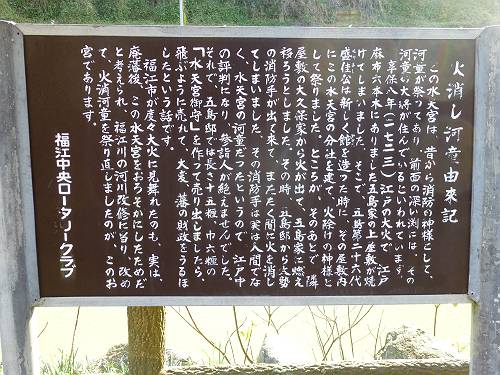 火消し河童由來記
この水天宮は、昔から消防の神様として、
河童が祭ってあり、前面の深い渕には、その
河童の大将が住んでいるといわれています。
享保八年（一七二三）江戸の大火で、江戸
麻布六本木にありました五島家の上屋敷が焼
けてしまいました。そこで、五島第二十六代
盛佳公は新しく館を造った時に、その屋敷内
にこの水天宮の分社を建て、火除けの神様と
して祭りました。ところが、そのあとで隣
屋敷の大久保家から火が出て、五島家に燃え
移ろうとしました。その時、五島邸から大勢
の消防手が出て来て、またたく間に火を消し
てしまいました。その消防手は実は人間でな
く、水天宮の河童だったというので、江戸中
の評判になり、参詣人が絶えませんでした。
それで、五島邸では長さ十五糎巾六糎の
「水天宮御守」を作って売り出しましたら、
飛ぶように売れて、大変、藩の財政をうるほ
したという話です。
福江市が度々大火に見舞れたのも、実は、
廃藩後、この水天宮をおろそかにしたためだ
と考えられ、福江川の河川改修に当り、改め
て、火消河童を祭り直しましたのが、このお
宮であります。
福江中央ロータリークラブ